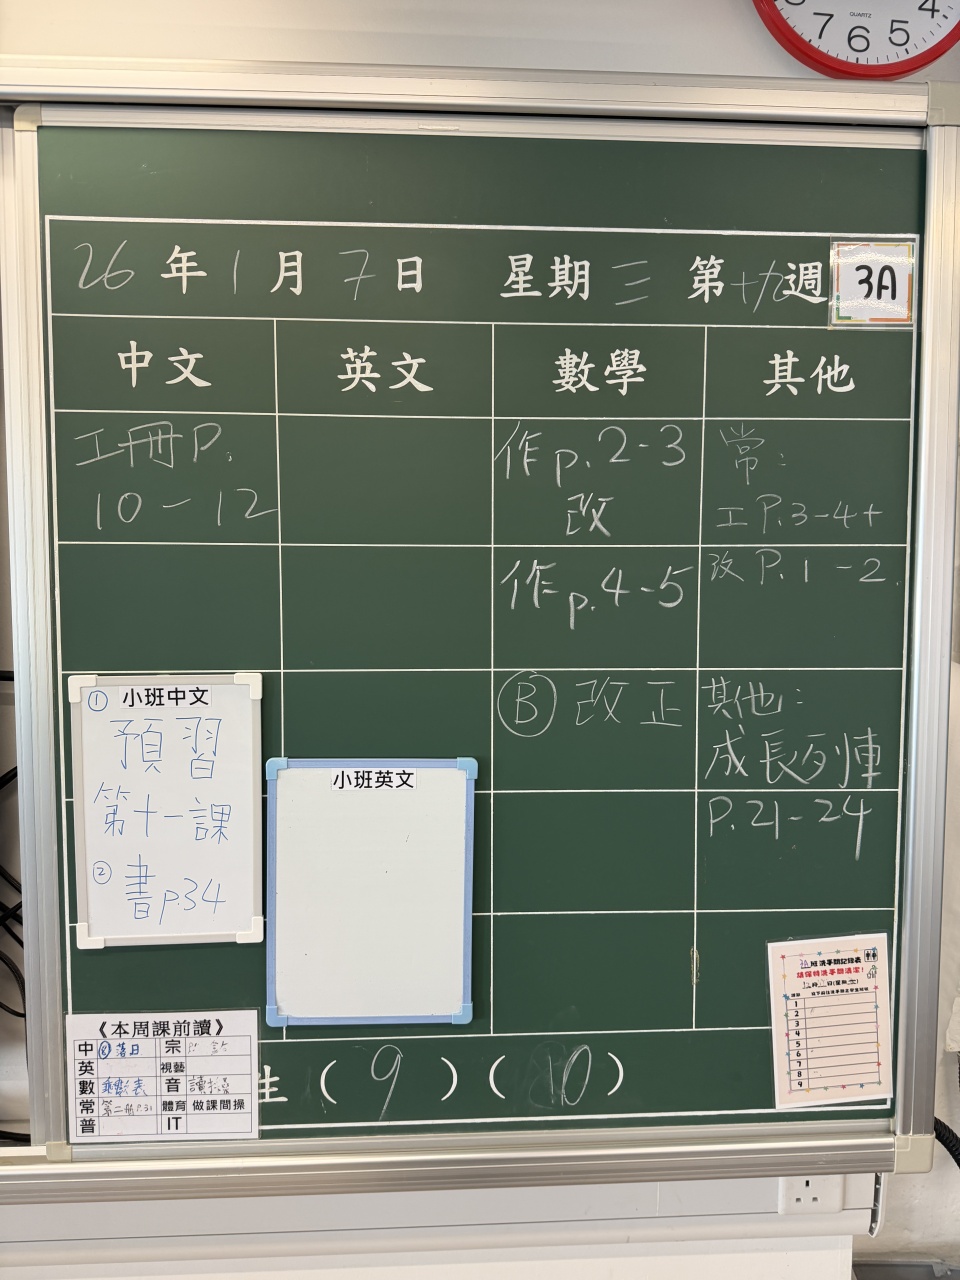 4
7 6 5
QUARTZ
26年1月7日 星期三 第十九週
3A
中文 英文 數學 其他
工冊P.
10-12
作p.2-3
改
作p.4-5
Ⓑ改正
常:
工P.3-4+
改P.1-2.
其他:
成長列車
P.21-24
小班中文
① 預習
第十一課
② 書p.34
小班英文
《本周課前讀》
中 ⑧落日 宗
英 視藝
數 乘數表 音
常 第二冊P.31 體育 做課間操
普 IT
生(9)(10)
3A班洗手間記錄表
請保持洗手間清潔!
1
2
3
4
5
6
7
8
9